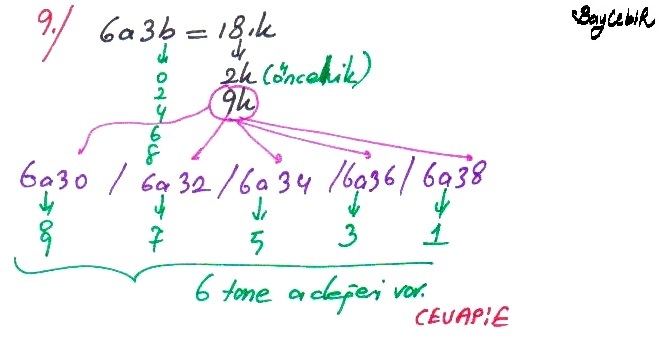 BayCebiR
9./ 6a3b = 18.k
0 2k (öncelik)
2 9k
4
6
8
6a30 / 6a32 / 6a34 / 6a36 / 6a38
9 7 5 3 1
6 tane a değeri var.
CEVAP:E